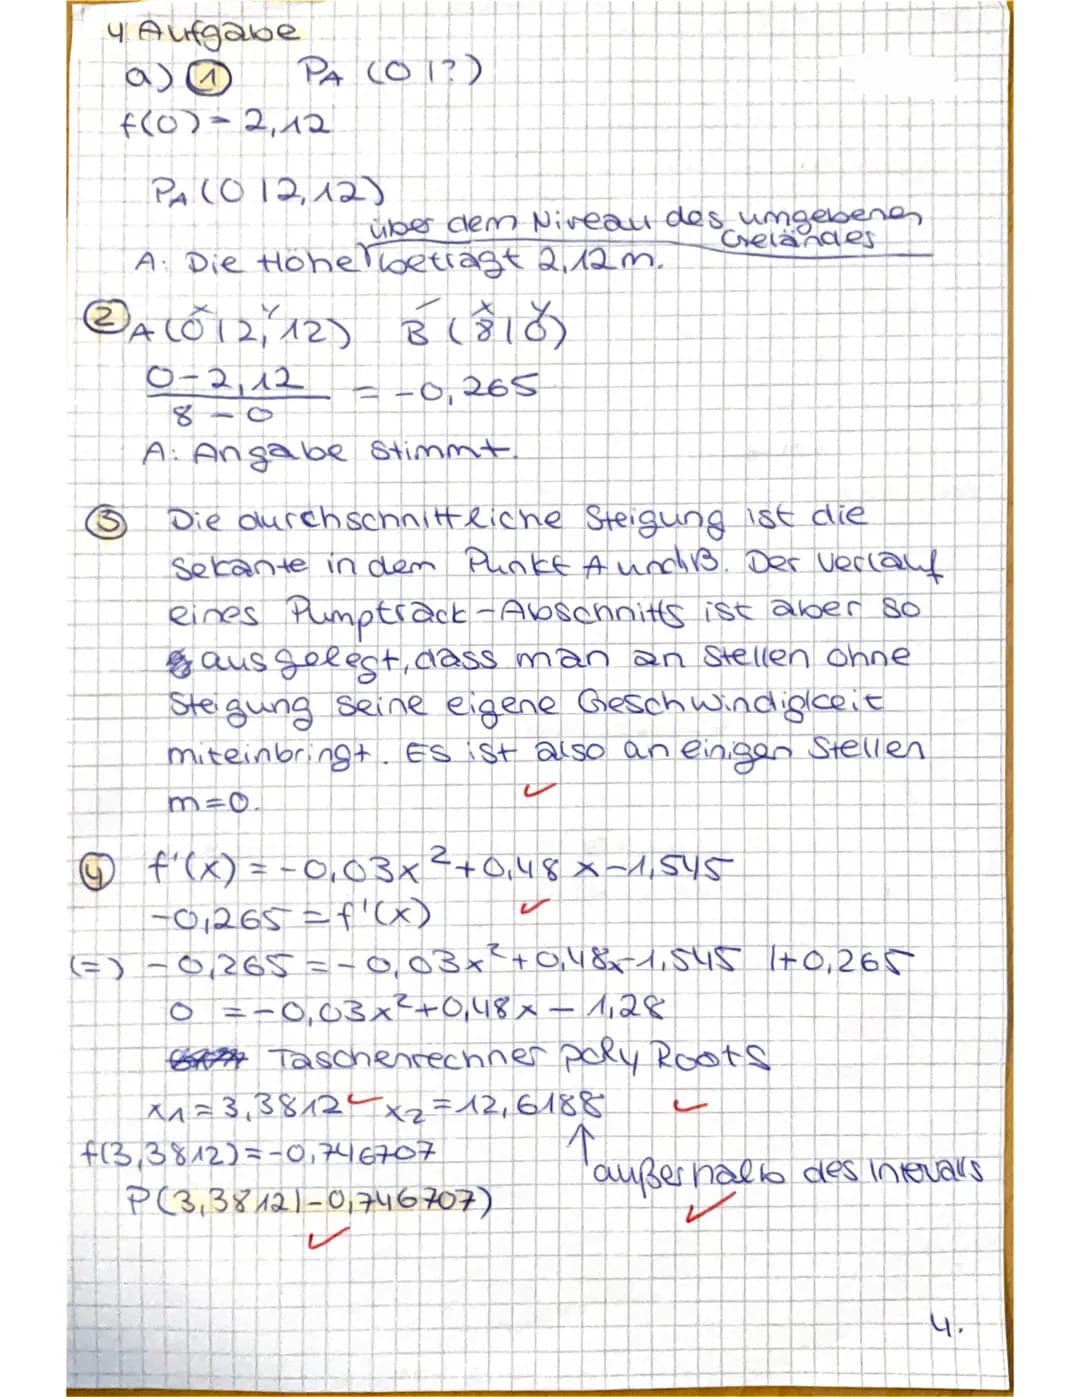 4 Aufgabe
a) ① PA (0|?)
f(0) = 2,12
PA (0|2,12)
über dem Niveau des umgebenen
Geländes
A: Die Höhe beträgt 2,12m.
② A (0|2,12) B (8|0)
x y x y
0-2,12
8-0
= -0,265
A: Angabe stimmt.
③ Die durchschnittliche Steigung ist die
Sekante in dem Punkt A und B. Der Verlauf
eines Pumptrack-Abschnitts ist aber so
ausgelegt, dass man an Stellen ohne
Steigung seine eigene Geschwindigkeit
miteinbringt. Es ist also an einigen Stellen
m=0.
④ f'(x) = -0,03x²+0,48x-1,545
-0,265 = f'(x)
(=) -0,265 = -0,03x²+0,48x-1,545 |+0,265
0 = -0,03x²+0,48x - 1,28
Taschenrechner poly Roots
x1 = 3,3812 x2 = 12,6188
f(3,3812) = -0,746707
außerhalb des Intervalls
P(3,3812|-0,746707)
4.